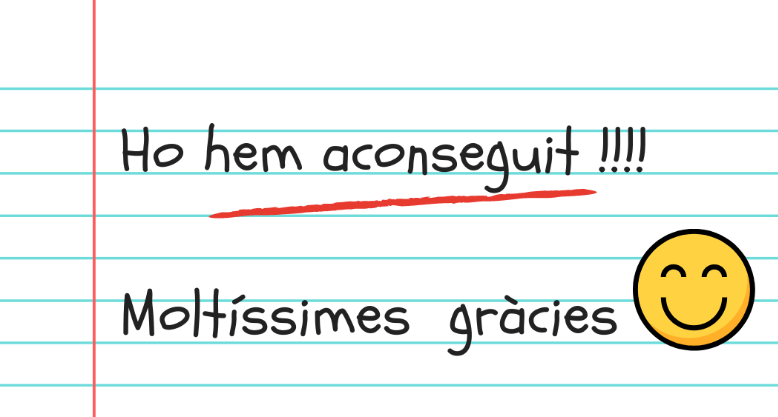 Ho hem aconseguit !!!!
Moltíssimes gràcies